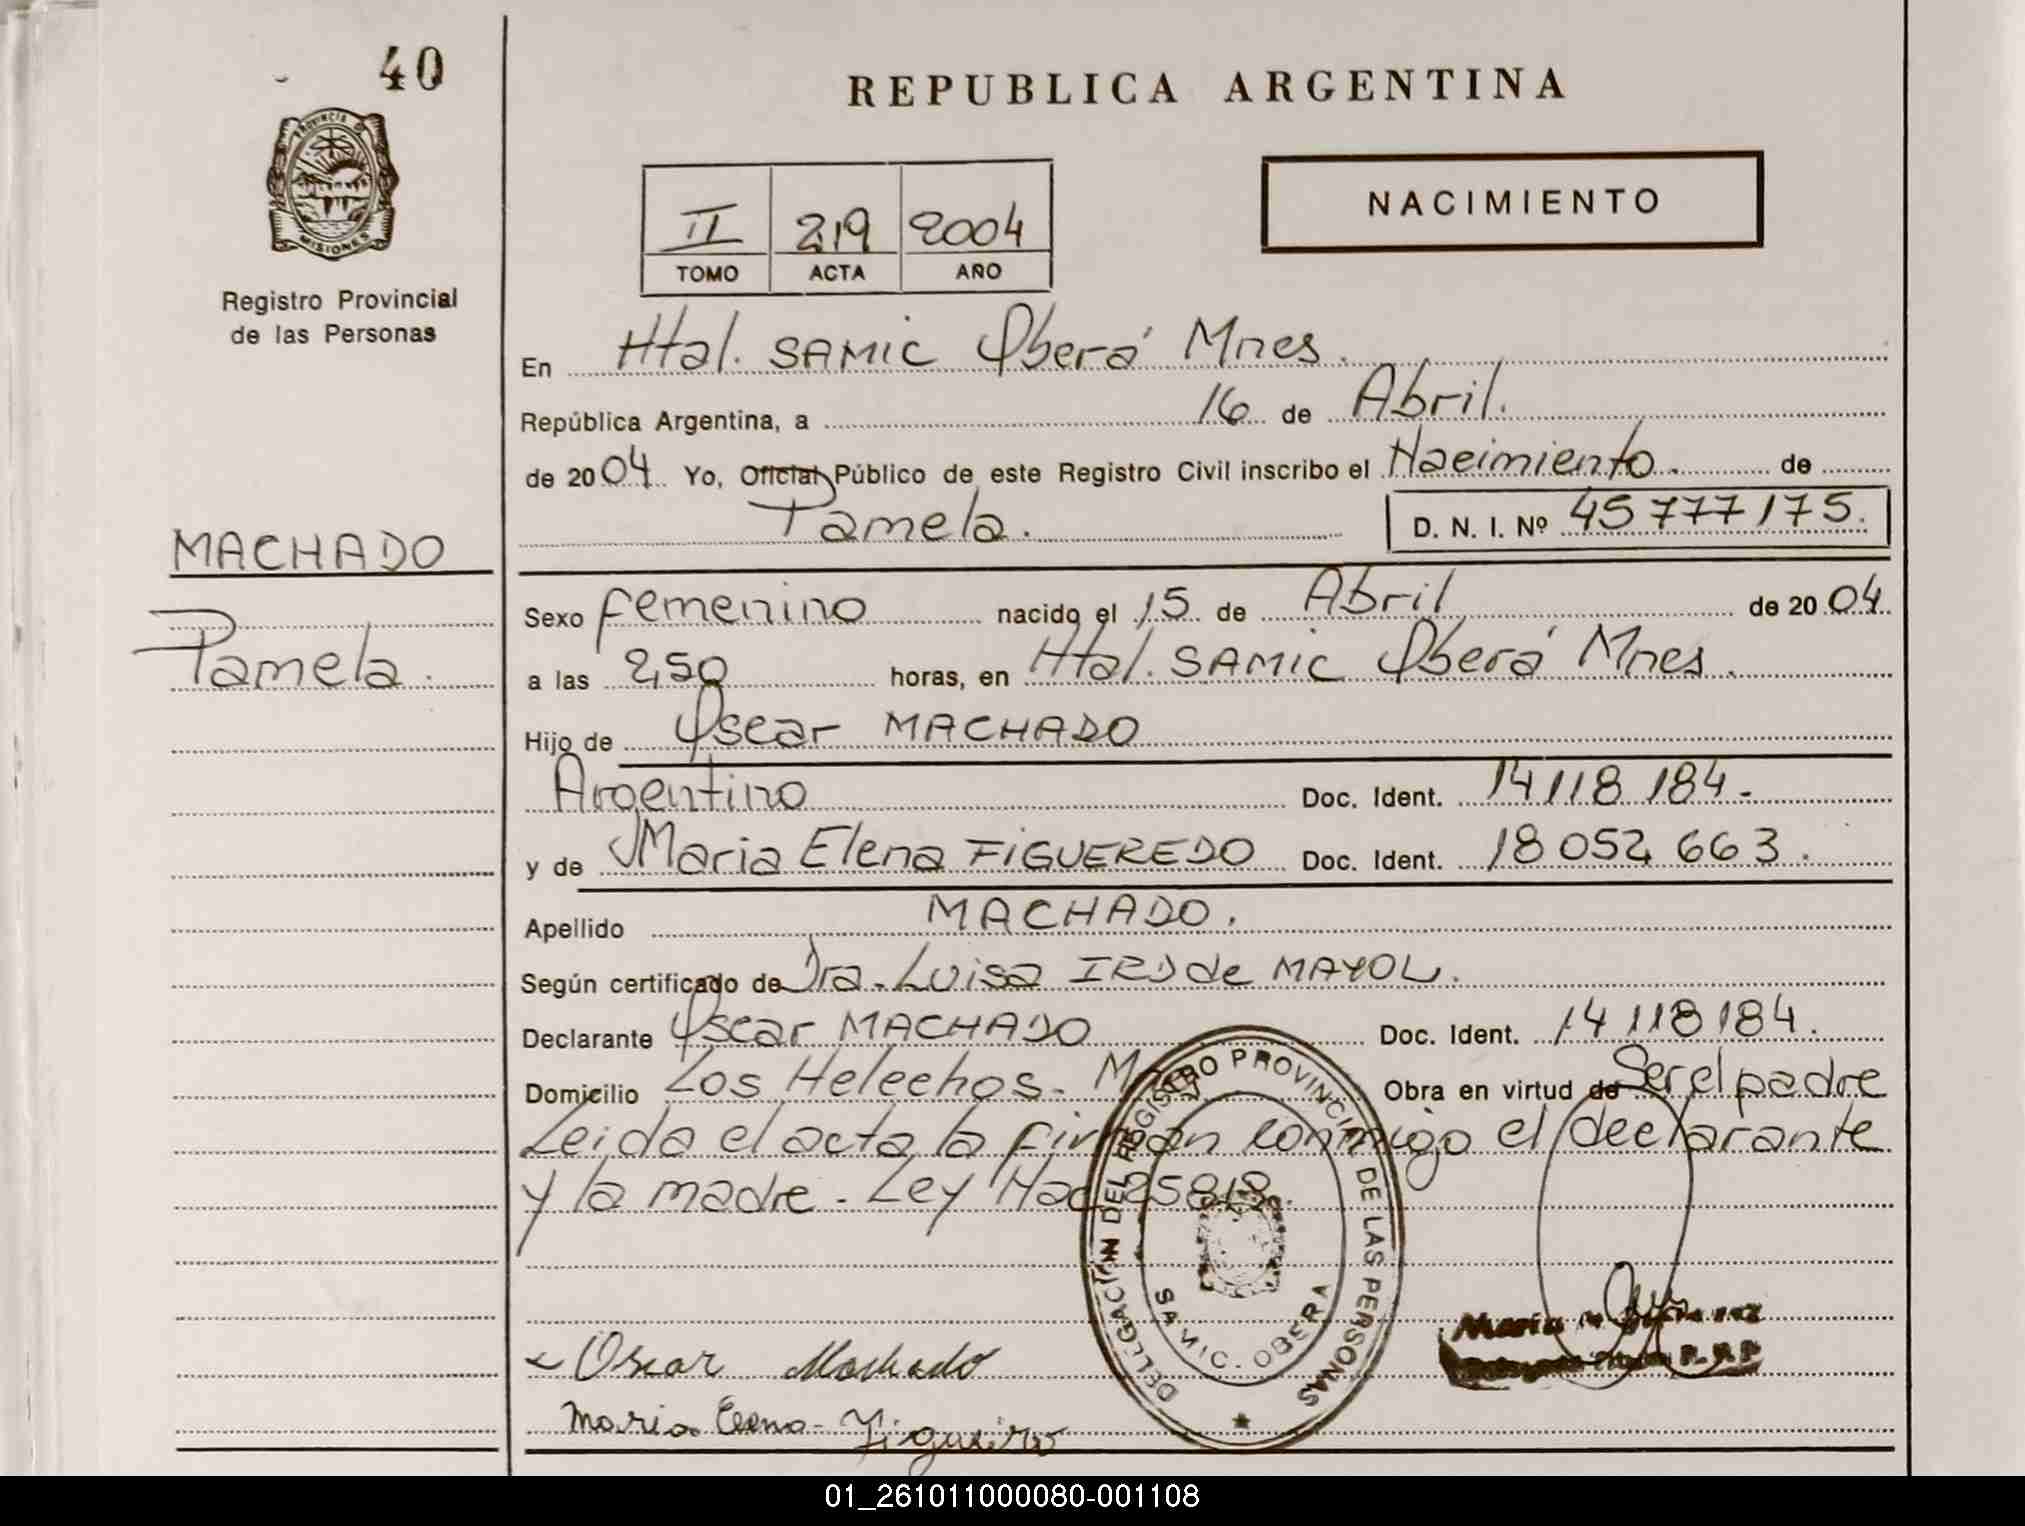 40
REPUBLICA ARGENTINA
PROVINCIA DE
MISIONES
Registro Provincial
de las Personas
II 219 2004
TOMO ACTA AÑO
NACIMIENTO
En Htal. SAMIC Oberá Mnes.
República Argentina, a 16 de Abril.
de 2004. Yo, Oficial Público de este Registro Civil inscribo el Nacimiento. de
Pamela. D. N. I. Nº 45 777 175.
MACHADO
Pamela.
Sexo femenino nacido el 15 de Abril de 2004.
a las 2,50 horas, en Htal. SAMIC Oberá Mnes.
Hijo de Oscar MACHADO
Argentino Doc. Ident. 14 118 184.-
y de Maria Elena FIGUEREDO Doc. Ident. 18 052 663.
Apellido MACHADO.
Según certificado de Dra. Luisa IRD de MAYOL.
Declarante Oscar MACHADO Doc. Ident. 14 118 184.
Domicilio Los Helechos - Obra en virtud de Ser el padre
Leida el acta la firman conmigo el declarante
y la madre. Ley Nac 25818.
DELEGACION DEL REGISTRO PROVINCIAL DE LAS PERSONAS
SAMIC. OBERA
Oscar Machado
Maria Elena Figueiro
Maria
R.P.P
01_261011000080-001108